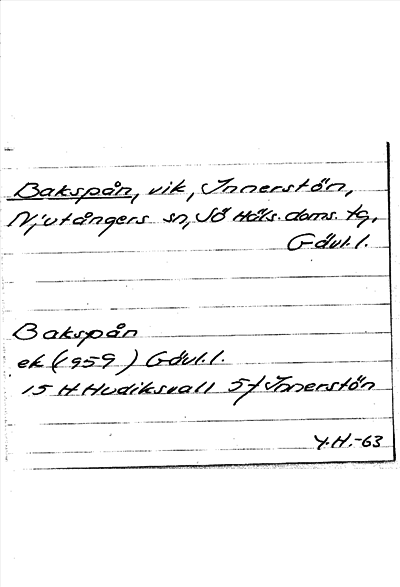 Bakspån, vik, Innerstön,
Njutångers sn, Sö Häls. doms. tg,
Gävl. l.
Bakspån
ek (1959) Gävl. l.
15 H Hudiksvall 5f Innerstön
Y.H.-63